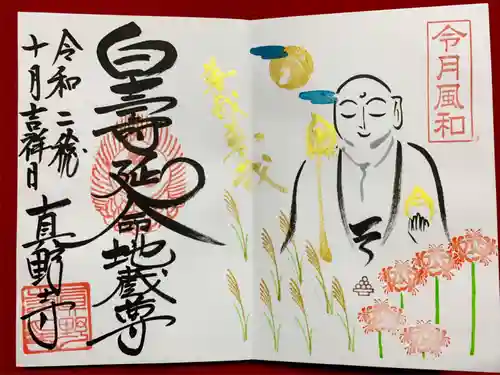 令月風和
皇壽延命地蔵尊
令和二歳
十月吉祥日
真野寺